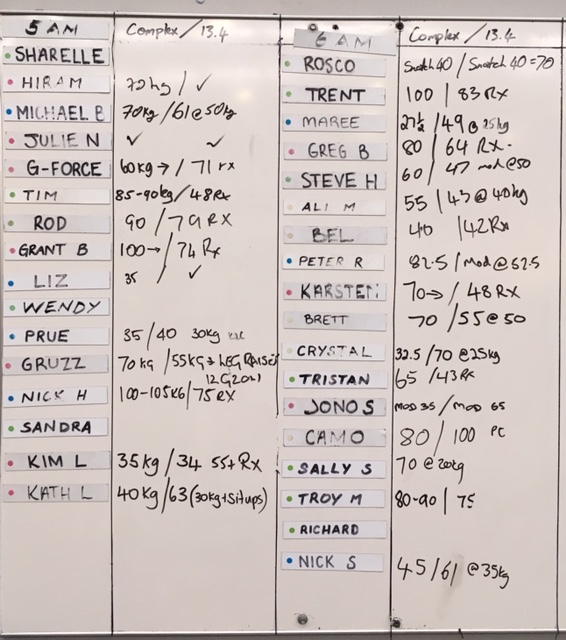 5 AM Complex / 13.4
SHARELLE
HIRAM 72kg / ✓
MICHAEL B 70kg / 61 @ 50kg
JULIE N ✓ ✓
G-FORCE 60kg → / 71 rx
TIM 85-90kg / 48 Rx
ROD 90 / 79 RX
GRANT B 100 → / 74 Rx
LIZ 35 / ✓
WENDY
PRUE 35 / 40 30kg
GRUZZ 70 kg / 55kg + LEG RAISES
NICK H 100-105KG / 75 RX
SANDRA
KIM L 35kg / 34 55+ Rx
KATH L 40kg / 63 (30kg + situps)
6 AM Complex / 13.4
ROSCO Snatch 40 / Snatch 40 = 70
TRENT 100 / 83 Rx
MAREE 27½ / 49 @ 25kg
GREG B 80 / 64 Rx
STEVE H 60 / 47 mod @ 50
ALI M 55 / 43 @ 40kg
BEL 40 / 42 Rx
PETER R 82.5 / Mod @ 52.5
KARSTEN 70 → / 48 RX
BRETT 70 / 55 @ 50
CRYSTAL 32.5 / 70 @ 25kg
TRISTAN 65 / 43 Rx
JONO S MOD 35 / MOD 65
CAMO 80 / 100 PC
SALLY S 70 @ 20kg
TROY M 80-90 / 75
RICHARD
NICK S 45 / 61 @ 35kg